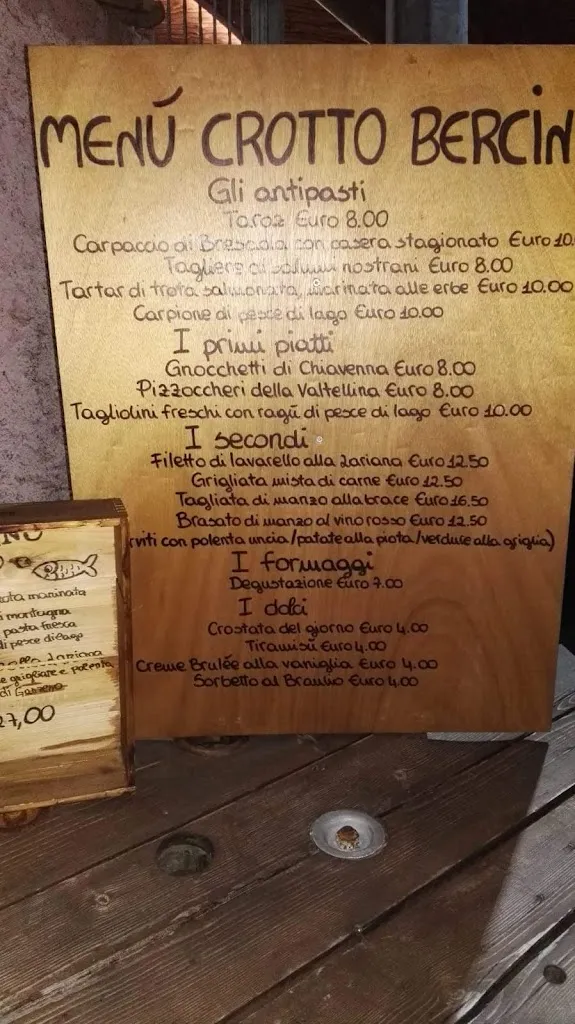 MENÚ CROTTO BERCIN
Gli antipasti
Taroz Euro 8.00
Carpaccio di Bresaola con casera stagionato Euro 10.
Tagliere di salumi nostrani Euro 8.00
Tartar di trota salmonata, marinata alle erbe Euro 10.00
Carpione di pesce di lago Euro 10.00
I primi piatti
Gnocchetti di Chiavenna Euro 8.00
Pizzoccheri della Valtellina Euro 8.00
Tagliolini freschi con ragū di pesce di lago Euro 10.00
I secondi
Filetto di lavarello alla lariana Euro 12.50
Grigliata mista di carne Euro 12.50
Tagliata di manzo alla brace Euro 16.50
Brasato di manzo al vino rosso Euro 12.50
rviti con polenta uncia/patate alla piota/verdure alla griglia)
I formaggi
Degustazione Euro 7.00
I dolci
Crostata del giorno Euro 4.00
Tiramisū Euro 4.00
Creme Brulée alla vaniglia Euro 4.00
Sorbetto al Braulio Euro 4.00
NU
ota marinata
i montagna
pasta fresca
di pesce di lago
alla lariana
e grigliate e polenta
di
27,00